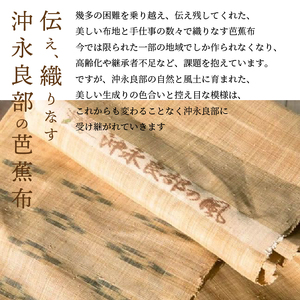 伝え、織りなす
沖永良部の芭蕉布
幾多の困難を乗り越え、伝え残してくれた、
美しい布地と手仕事の数々で織りなす芭蕉布
今では限られた一部の地域でしか作られなくなり、
高齢化や継承者不足など、課題を抱えています。
ですが、沖永良部の自然と風土に育まれた、
美しい生成りの色合いと控え目な模様は、
これからも変わることなく沖永良部に
受け継がれていきます
沖永良部の風